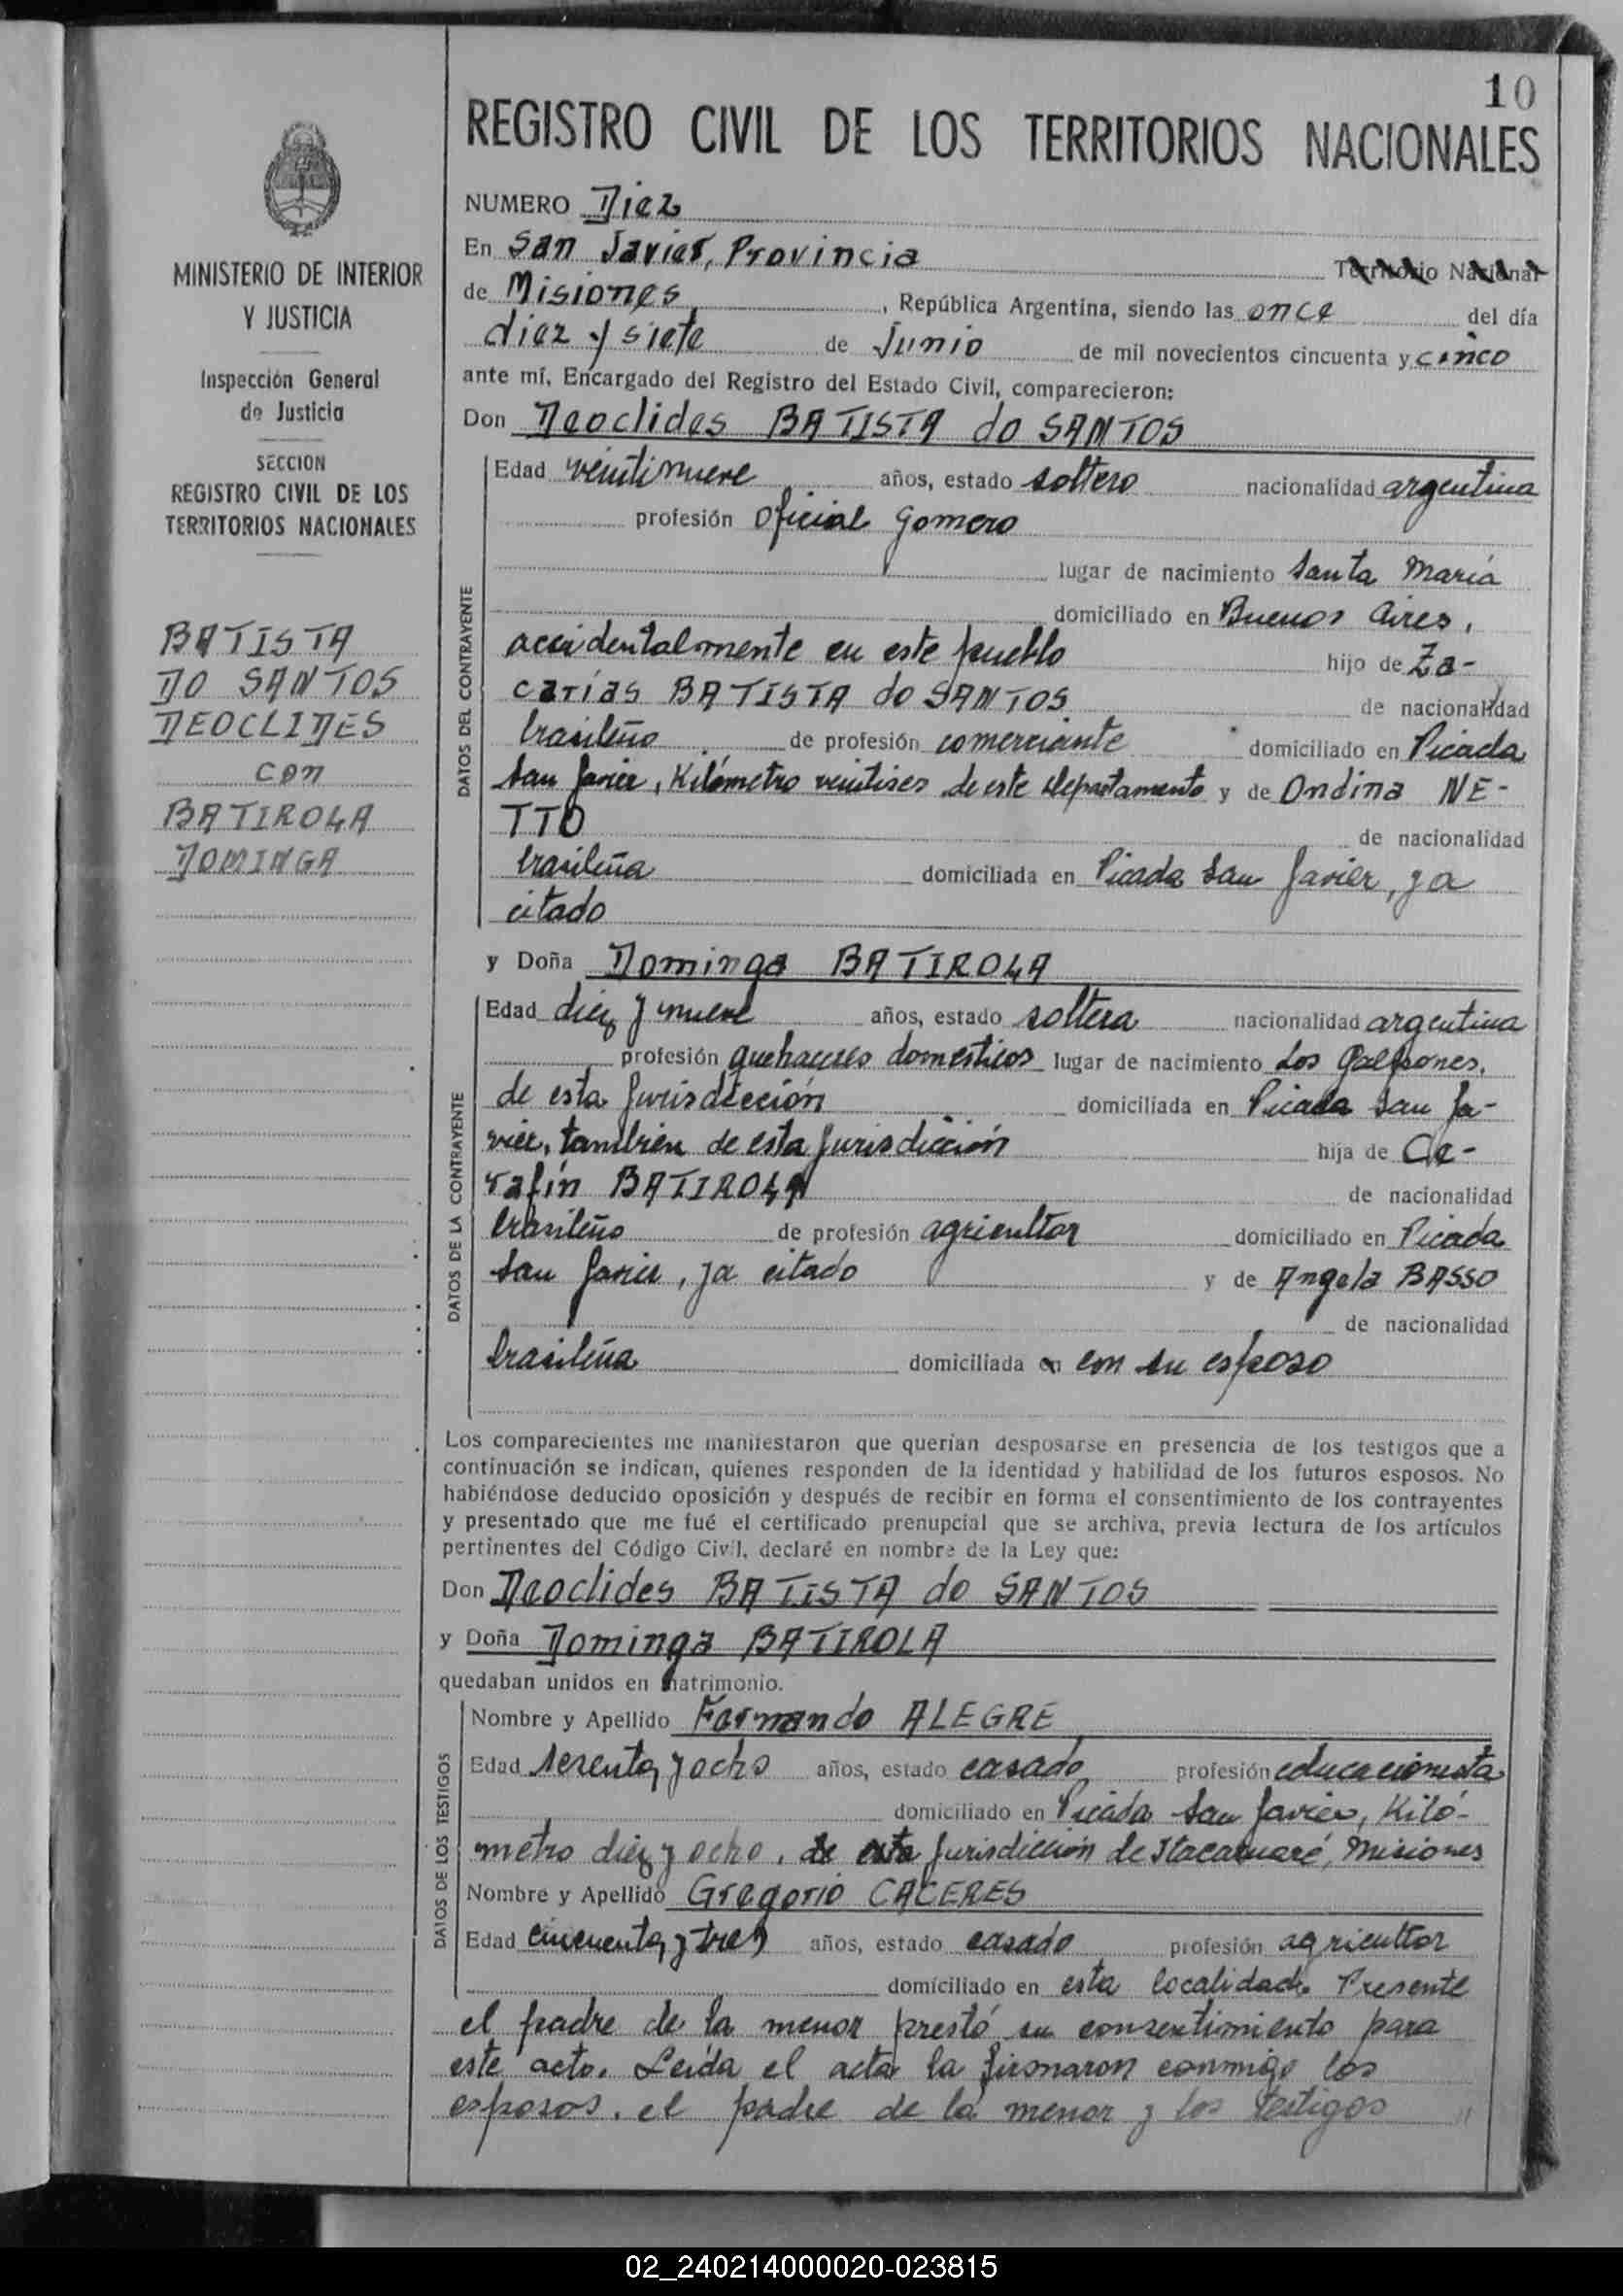 10
REGISTRO CIVIL DE LOS TERRITORIOS NACIONALES
MINISTERIO DE INTERIOR
Y JUSTICIA
Inspección General
de Justicia
SECCION
REGISTRO CIVIL DE LOS
TERRITORIOS NACIONALES
BATISTA
DO SANTOS
DEOCLIDES
con
BATIROLA
DOMINGA
NUMERO Diez
En San Javier, Provincia Territorio Nacional
de Misiones, República Argentina, siendo las once del día
diez y siete de Junio de mil novecientos cincuenta y cinco
ante mí, Encargado del Registro del Estado Civil, comparecieron:
Don Deoclides BATISTA do SANTOS
DATOS DEL CONTRAYENTE
Edad veintinueve años, estado soltero nacionalidad argentina
profesión oficial gomero
lugar de nacimiento Santa María
domiciliado en Buenos Aires,
accidentalmente en este pueblo hijo de Za-
carías BATISTA do SANTOS de nacionalidad
brasileño de profesión comerciante domiciliado en Picada
San Javier, Kilómetro veintiseis de este Departamento y de Ondina NE-
TTO de nacionalidad
brasileña domiciliada en Picada San Javier, ya
citado
y Doña Dominga BATIROLA
DATOS DE LA CONTRAYENTE
Edad diez y nueve años, estado soltera nacionalidad argentina
profesión quehaceres domesticos lugar de nacimiento Los Galpones,
de esta Jurisdicción domiciliada en Picada San Ja-
vier, también de esta Jurisdicción hija de Ce-
rafín BATIROLA de nacionalidad
brasileño de profesión agricultor domiciliado en Picada
San Javier, ya citado y de Angela BASSO
de nacionalidad
brasileña domiciliada en con su esposo
Los comparecientes me manifestaron que querían desposarse en presencia de los testigos que a
continuación se indican, quienes responden de la identidad y habilidad de los futuros esposos. No
habiéndose deducido oposición y después de recibir en forma el consentimiento de los contrayentes
y presentado que me fué el certificado prenupcial que se archiva, previa lectura de los artículos
pertinentes del Código Civil, declaré en nombre de la Ley que:
Don Deoclides BATISTA do SANTOS
y Doña Dominga BATIROLA
quedaban unidos en matrimonio.
DATOS DE LOS TESTIGOS
Nombre y Apellido Fernando ALEGRE
Edad años, estado casado profesión educacionista
domiciliado en Picada San Javier, Kiló-
metro diez y ocho, de esta Jurisdicción de Itacaruaré, Misiones
Nombre y Apellido Gregorio CACERES
Edad cincuenta y tres años, estado casado profesión agricultor
domiciliado en esta localidad. Presente
el padre de la menor prestó su consentimiento para
este acto. Leída el acta la firmaron conmigo los
esposos, el padre de la menor y los testigos
02_240214000020-023815